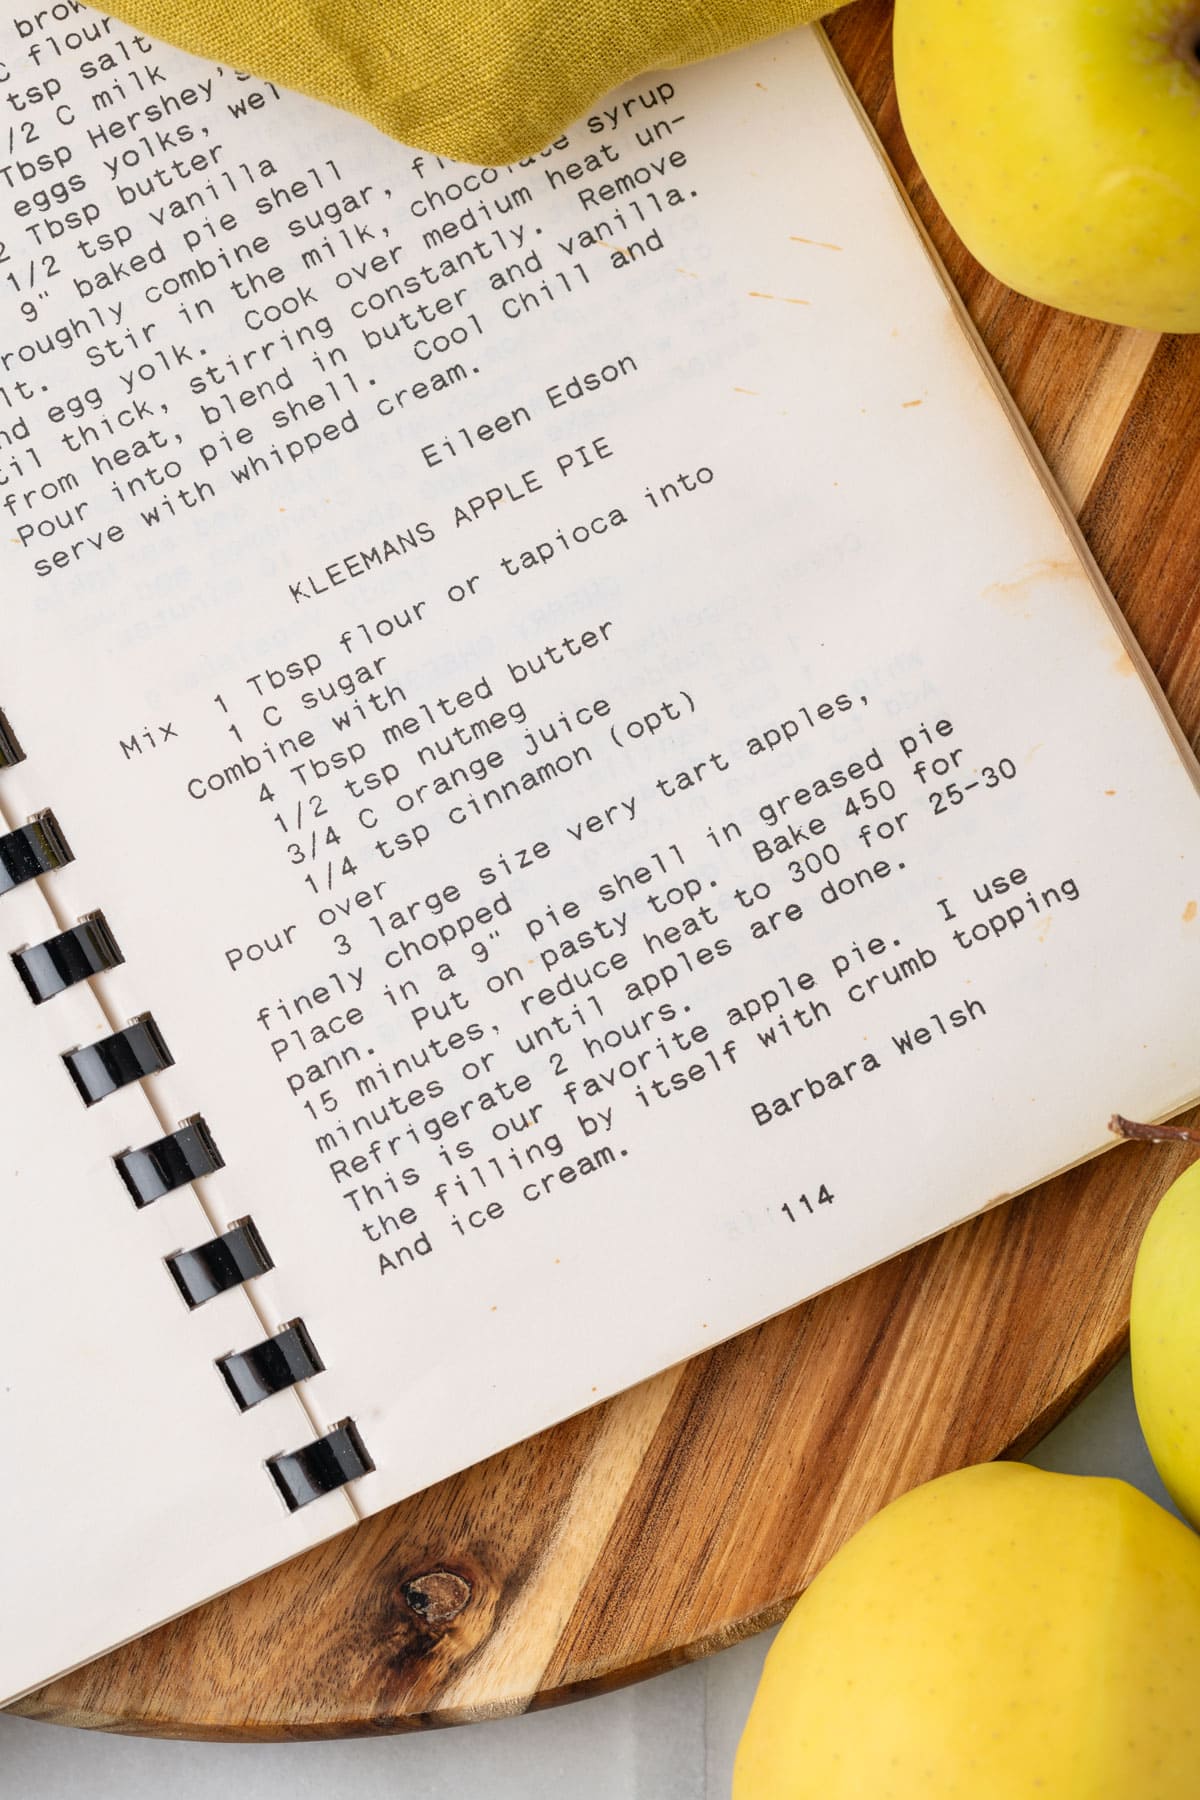 C flour
tsp salt
/2 C milk
Tbsp Hershey's
eggs yolks,
2 Tbsp butter
1/2 tsp vanilla
9" baked pie shell
roughly combine sugar,
lt. Stir in the milk, chocolate syrup
nd egg yolk. Cook over medium heat un-
til thick, stirring constantly. Remove
from heat, blend in butter and vanilla.
Pour into pie shell. Cool Chill and
serve with whipped cream.
Eileen Edson
KLEEMANS APPLE PIE
Mix 1 Tbsp flour or tapioca into
1 C sugar
Combine with
4 Tbsp melted butter
1/2 tsp nutmeg
3/4 C orange juice
1/4 tsp cinnamon (opt)
Pour over
3 large size very tart apples,
finely chopped
Place in a 9" pie shell in greased pie
pann. Put on pasty top. Bake 450 for
15 minutes, reduce heat to 300 for 25-30
minutes or until apples are done.
Refrigerate 2 hours.
This is our favorite apple pie. I use
the filling by itself with crumb topping
And ice cream.
Barbara Welsh
114